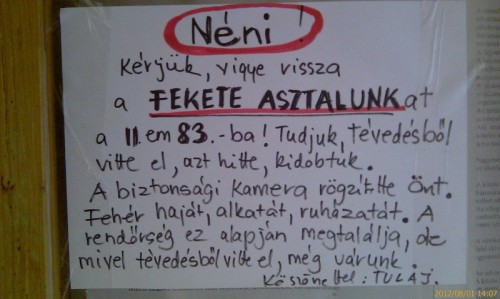 Néni!
Kérjük, vigye vissza
a FEKETE ASZTALUNKat
a 11 em 83.-ba! Tudjuk, tévedésből
vitte el, azt hitte, kidobtuk.
A biztonsági kamera rögzítette Önt.
Fehér haját, alkatát, ruházatát. A
rendőrség ez alapján megtalálja, de
mivel tévedésből vitte el, még várunk.
Köszönettel: TULAJ.
2012/08/01 14:07